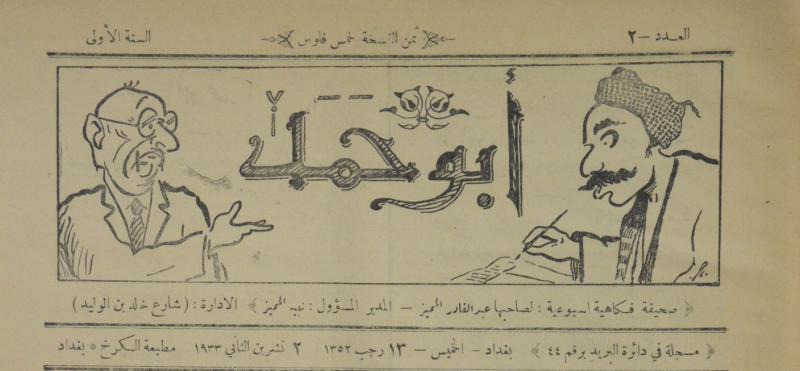 العدد – ٢ ثمن النسخة خمس فلوس السنة الأولى
أبو حمد
صحيفة فكاهية اسبوعية : لصاحبها عبدالقادر المميز – المدير المسؤول : نبيه المميز الادارة : ( شارع خالد بن الوليد )
مسجلة في دائرة البريد برقم ٤٤ بغداد – الخميس – ١٣ رجب ١٣٥٢ ٢ تشرين الثاني ١٩٣٣ مطبعة الكرخ * بغداد